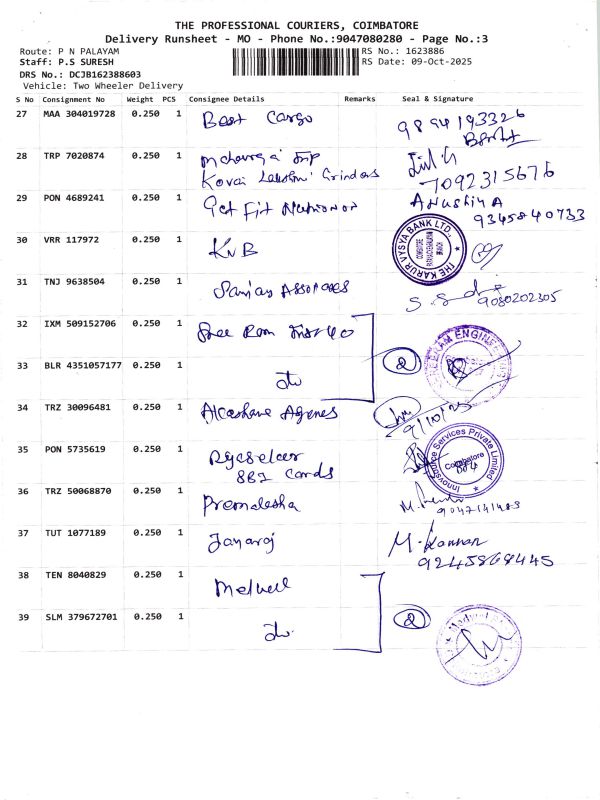 THE PROFESSIONAL COURIERS, COIMBATORE
Delivery Runsheet - MO - Phone No.:9047080280 - Page No.:3
Route: P N PALAYAM RS No.: 1623886
Staff: P.S SURESH RS Date: 09-Oct-2025
DRS No.: DCJB162388603
Vehicle: Two Wheeler Delivery
S No Consignment No Weight PCS Consignee Details Remarks Seal & Signature
27 MAA 304019728 0.250 1 Best Cargo 9894193326
28 TRP 7020874 0.250 1
Kovai Lakshmi Grinders 7092315676
29 PON 4689241 0.250 1 Get Fit Anushiya
9345840733
30 VRR 117972 0.250 1 KVB THE KARUR VYSYA BANK LTD.,
31 TNJ 9638504 0.250 1 Sanjay 9080202305
32 IXM 509152706 0.250 1 Sree Ram
33 BLR 4351057177 0.250 1 do 2
34 TRZ 30096481 0.250 1 9/10/25
35 PON 5735619 0.250 1 Private Limited
Coimbatore
SBI Cards
36 TRZ 50068870 0.250 1 Premalesha
37 TUT 1077189 0.250 1 Jayaraj M. Kannan
9245868445
38 TEN 8040829 0.250 1 Melwell
39 SLM 379672701 0.250 1 do 2